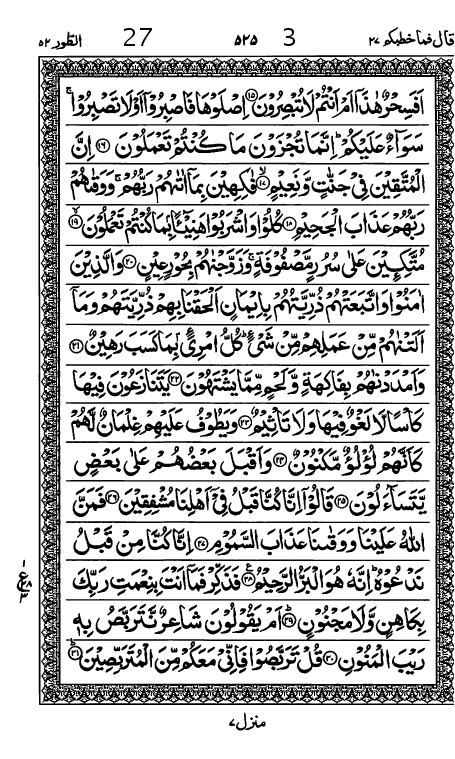 قال فما خطبكم ۲۷ 3 ۵۲۵ 27 الطور ۵۲
اَفَسِحْرٌ هٰذَاۤ اَمْ اَنْتُمْ لَا تُبْصِرُوْنَ ﴿۱۵﴾ اِصْلَوْهَا فَاصْبِرُوْۤا اَوْ لَا تَصْبِرُوْا ۚ
سَوَآءٌ عَلَيْكُمْ ؕ اِنَّمَا تُجْزَوْنَ مَا كُنْتُمْ تَعْمَلُوْنَ ﴿۱۶﴾ اِنَّ
الْمُتَّقِيْنَ فِيْ جَنّٰتٍ وَّنَعِيْمٍ ﴿۱۷﴾ۙ فٰكِهِيْنَ بِمَاۤ اٰتٰىهُمْ رَبُّهُمْ ۚ وَوَقٰىهُمْ
رَبُّهُمْ عَذَابَ الْجَحِيْمِ ﴿۱۸﴾ كُلُوْا وَاشْرَبُوْا هَنِيْٓـًٔۢا بِمَا كُنْتُمْ تَعْمَلُوْنَ ﴿۱۹﴾ۙ
مُتَّكِـِٕيْنَ عَلٰى سُرُرٍ مَّصْفُوْفَةٍ ۚ وَزَوَّجْنٰهُمْ بِحُوْرٍ عِيْنٍ ﴿۲۰﴾ وَالَّذِيْنَ
اٰمَنُوْا وَاتَّبَعَتْهُمْ ذُرِّيَّتُهُمْ بِاِيْمَانٍ اَلْحَقْنَا بِهِمْ ذُرِّيَّتَهُمْ وَمَاۤ
اَلَتْنٰهُمْ مِّنْ عَمَلِهِمْ مِّنْ شَيْءٍ ؕ كُلُّ امْرِئٍۢ بِمَا كَسَبَ رَهِيْنٌ ﴿۲۱﴾
وَاَمْدَدْنٰهُمْ بِفَاكِهَةٍ وَّلَحْمٍ مِّمَّا يَشْتَهُوْنَ ﴿۲۲﴾ يَتَنَازَعُوْنَ فِيْهَا
كَاْسًا لَّا لَغْوٌ فِيْهَا وَلَا تَاْثِيْمٌ ﴿۲۳﴾ وَيَطُوْفُ عَلَيْهِمْ غِلْمَانٌ لَّهُمْ
كَاَنَّهُمْ لُؤْلُؤٌ مَّكْنُوْنٌ ﴿۲۴﴾ وَاَقْبَلَ بَعْضُهُمْ عَلٰى بَعْضٍ
يَّتَسَآءَلُوْنَ ﴿۲۵﴾ قَالُوْۤا اِنَّا كُنَّا قَبْلُ فِيْۤ اَهْلِنَا مُشْفِقِيْنَ ﴿۲۶﴾ فَمَنَّ
اللّٰهُ عَلَيْنَا وَوَقٰىنَا عَذَابَ السَّمُوْمِ ﴿۲۷﴾ اِنَّا كُنَّا مِنْ قَبْلُ
نَدْعُوْهُ ؕ اِنَّهٗ هُوَ الْبَرُّ الرَّحِيْمُ ﴿۲۸﴾ فَذَكِّرْ فَمَاۤ اَنْتَ بِنِعْمَتِ رَبِّكَ
بِكَاهِنٍ وَّلَا مَجْنُوْنٍ ﴿۲۹﴾ اَمْ يَقُوْلُوْنَ شَاعِرٌ نَّتَرَبَّصُ بِهٖ
رَيْبَ الْمَنُوْنِ ﴿۳۰﴾ قُلْ تَرَبَّصُوْا فَاِنِّيْ مَعَكُمْ مِّنَ الْمُتَرَبِّصِيْنَ ﴿۳۱﴾ؕ
منزل ۷